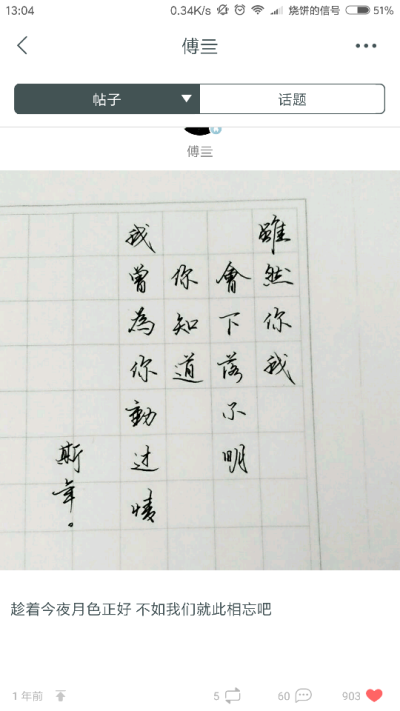 13:04
0.34K/s
烧饼的信号
51%
傅亖
帖子
话题
傅亖
雖然你我
會下落不明
你知道
我曾為你動过情
斯年。
趁着今夜月色正好 不如我们就此相忘吧
1 年前
5
60
903